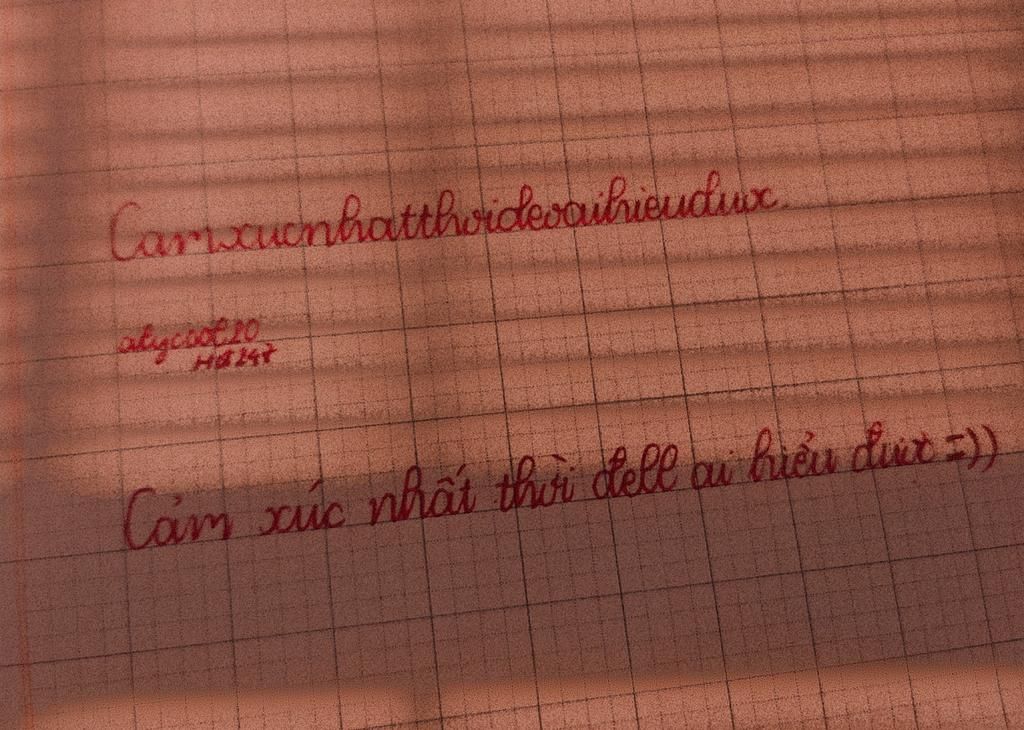 Camxucnhatthoideoaihieuduoc.
alycool20
HST247
Cảm xúc nhất thời đell ai hiểu được =))